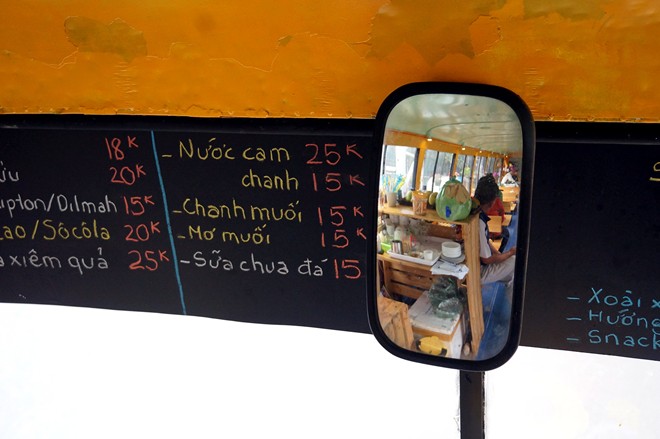 18K
20K
upton/Dilmah 15K
cao/Sôcôla 20K
a xiêm quả 25K
- Nước cam 25K
chanh 15K
- Chanh muối 15K
- Mơ muối 15K
- Sữa chua đá 15
- Xoài x
- Hướng
- Snack